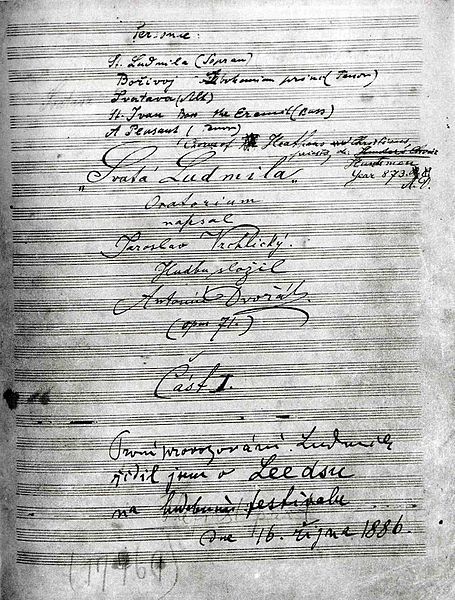 Personae:
St. Ludmila (Sopran)
Bořivoj Bohemian prince (Tenor)
Svatava (Alt)
St. Ivan the Eremit (Bass)
A Peasant (Tenor)
Crowd Heathens and Christians
priests
Huntsman
year 873.
"Svatá Ludmila"
Oratorium
napsal
Jaroslav Vrchlický.
Hudbu složil
Antonín Dvořák.
(opus 71.)
Část I.
První provozování Ludmily
řídil jsem v Leedsu
na hudebním festivalu
dne 16. října 1886.